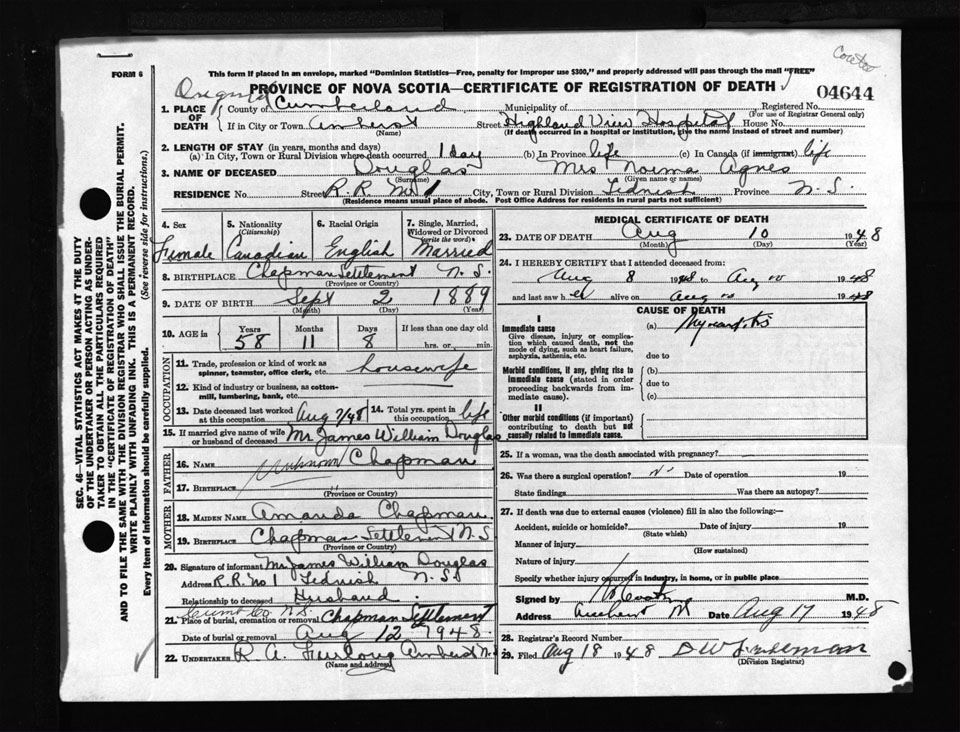 FORM 6
This form if placed in an envelope, marked "Dominion Statistics—Free, penalty for improper use $300," and properly addressed will pass through the mail "FREE"
PROVINCE OF NOVA SCOTIA—CERTIFICATE OF REGISTRATION OF DEATH
04644
1. PLACE OF DEATH
County of Cumberland Municipality of Registered No.
(For use of Registrar General only)
If in City or Town Amherst Street Highland View Hospital House No.
(Name) (If death occurred in a hospital or institution, give the name instead of street and number)
2. LENGTH OF STAY (in years, months and days)
(a) In City, Town or Rural Division where death occurred 1 day (b) In Province life (c) In Canada (if immigrant) life
3. NAME OF DECEASED Douglas Mrs Norma Agnes
(Surname) (Given name or names)
RESIDENCE No. Street R.R. No 1 City, Town or Rural Division Tidnish Province N.S.
(Residence means usual place of abode. Post Office Address for residents in rural parts not sufficient)
4. Sex
Female
5. Nationality
(Citizenship)
Canadian
6. Racial Origin
English
7. Single, Married, Widowed or Divorced
(write the word)
Married
8. BIRTHPLACE Chapman Settlement N.S.
(Province or Country)
9. DATE OF BIRTH Sept 2 1889
(Month) (Day) (Year)
10. AGE in Years Months Days If less than one day old
58 11 8 hrs. or min.
OCCUPATION
11. Trade, profession or kind of work as spinner, teamster, office clerk, etc. housewife
12. Kind of industry or business, as cotton-mill, lumbering, bank, etc.
13. Date deceased last worked at this occupation Aug 7/48
14. Total yrs. spent in this occupation life
15. If married give name of wife or husband of deceased Mr James William Douglas
FATHER
16. NAME Unknown Chapman
17. BIRTHPLACE "
(Province or Country)
MOTHER
18. MAIDEN NAME Amanda Chapman
19. BIRTHPLACE Chapman Settlement N.S
(Province or Country)
20. Signature of informant Mr James William Douglas
Address R.R. No 1 Tidnish N.S
Relationship to deceased Husband
Cumb Co. N.S.
21. Place of burial, cremation or removal Chapman Settlement
Date of burial or removal Aug 12 1948
22. UNDERTAKER R. A. Furlong Amherst N.S.
(Name and address)
MEDICAL CERTIFICATE OF DEATH
23. DATE OF DEATH Aug 10 1948
(Month) (Day) (Year)
24. I HEREBY CERTIFY that I attended deceased from:
Aug 8 1948 to Aug 10 1948
and last saw her alive on Aug 10 1948
CAUSE OF DEATH
I
Immediate cause
Give disease, injury or complication which caused death, not the mode of dying, such as heart failure, asphyxia, asthenia, etc.
(a) Myocarditis
due to
Morbid conditions, if any, giving rise to immediate cause (stated in order proceeding backwards from immediate cause).
(b)
due to
(c)
II
Other morbid conditions (if important) contributing to death but not causally related to immediate cause.
25. If a woman, was the death associated with pregnancy?
26. Was there a surgical operation? Date of operation 19
State findings Was there an autopsy?
27. If death was due to external causes (violence) fill in also the following—
Accident, suicide or homicide? Date of injury 19
(State which)
Manner of injury
(How sustained)
Nature of injury
Specify whether injury occurred in industry, in home, or in public place
Signed by M.D.
Address Amherst NS Date Aug 17 1948
28. Registrar's Record Number
29. Filed Aug 18 1948
(Division Registrar)
SEC. 46—VITAL STATISTICS ACT MAKES IT THE DUTY
OF THE UNDERTAKER OR PERSON ACTING AS UNDER-
TAKER TO OBTAIN ALL THE PARTICULARS REQUIRED
IN THE "CERTIFICATE OF REGISTRATION OF DEATH"
AND TO FILE THE SAME WITH THE DIVISION REGISTRAR WHO SHALL ISSUE THE BURIAL PERMIT.
WRITE PLAINLY WITH UNFADING INK. THIS IS A PERMANENT RECORD.
Every item of information should be carefully supplied. (See reverse side for instructions.)